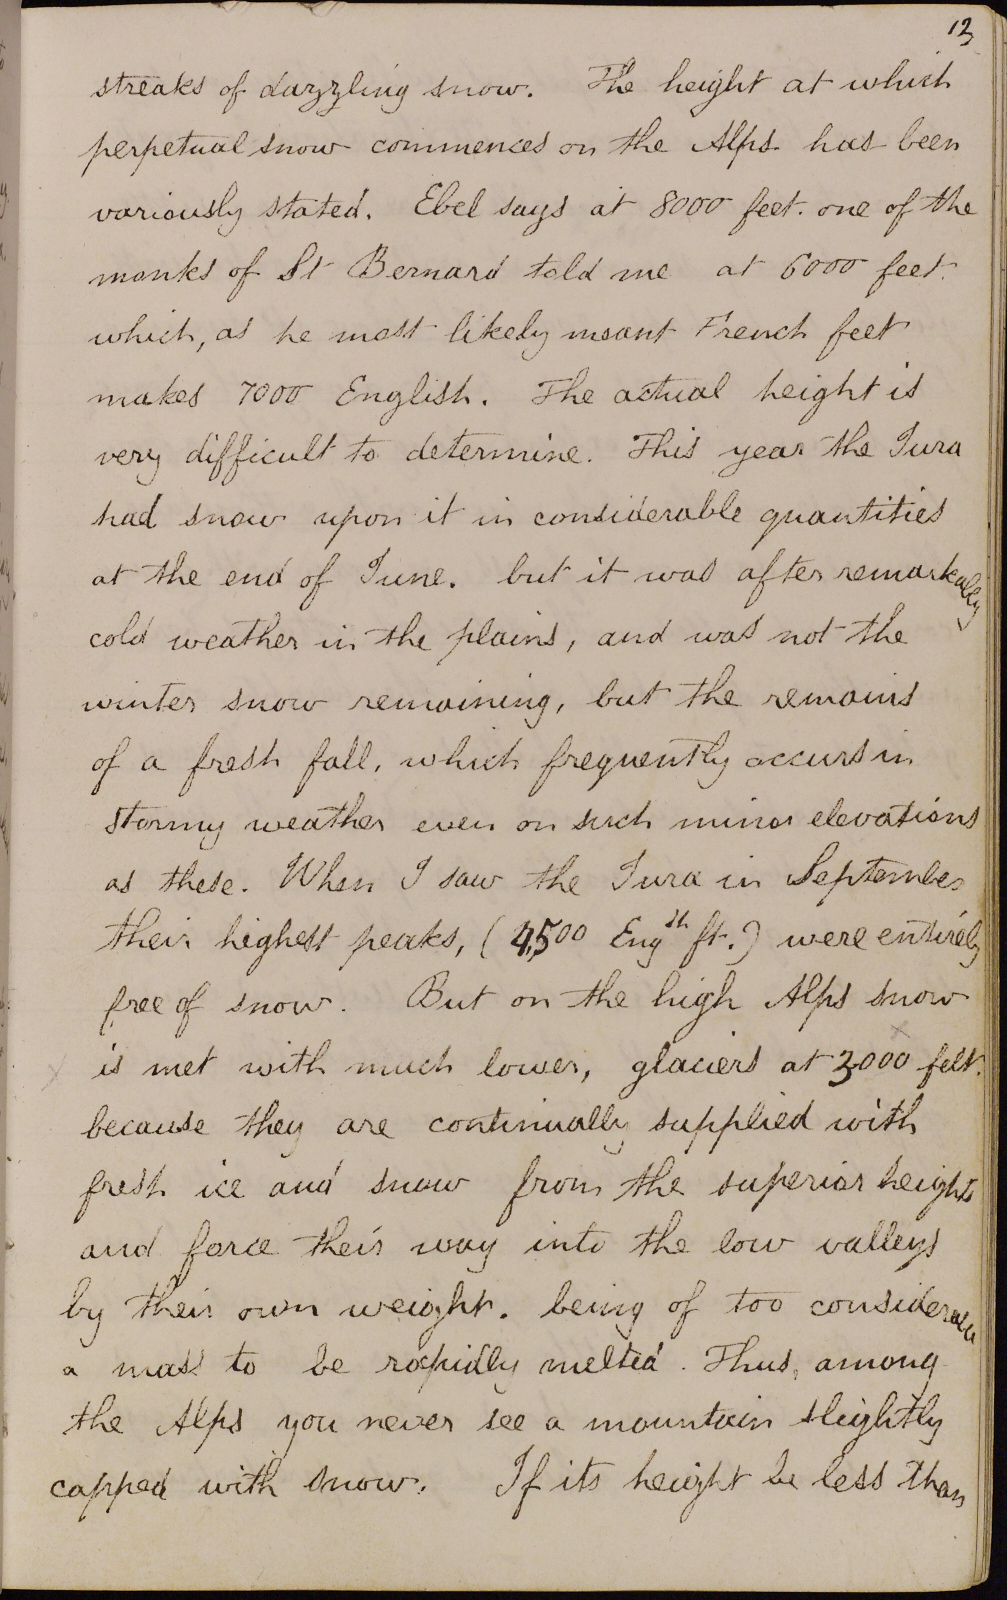 13
streaks of dazzling snow. The height at which
perpetual snow commences on the Alps has been
variously stated. Ebel says at 8000 feet. one of the
monks of St Bernard told me at 6000 feet.
which, as he most likely meant French feet
makes 7000 English. The actual height is
very difficult to determine. This year the Jura
had snow upon it in considerable quantities
at the end of June. but it was after remarkably
cold weather in the plains, and was not the
winter snow remaining, but the remains
of a fresh fall, which frequently occurs in
stormy weather even on such minor elevations
as these. When I saw the Jura in September
their highest peaks, (4,500 Eng.sh ft.) were entirely
free of snow. But on the high Alps snow
is met with much lower, glaciers at 3000 feet.
because they are continually supplied with
fresh ice and snow from the superior heights
and force their way into the low valleys
by their own weight. being of too considerable
a mass to be rapidly melted. Thus, among
the Alps you never see a mountain slightly
capped with snow. If its height be less than